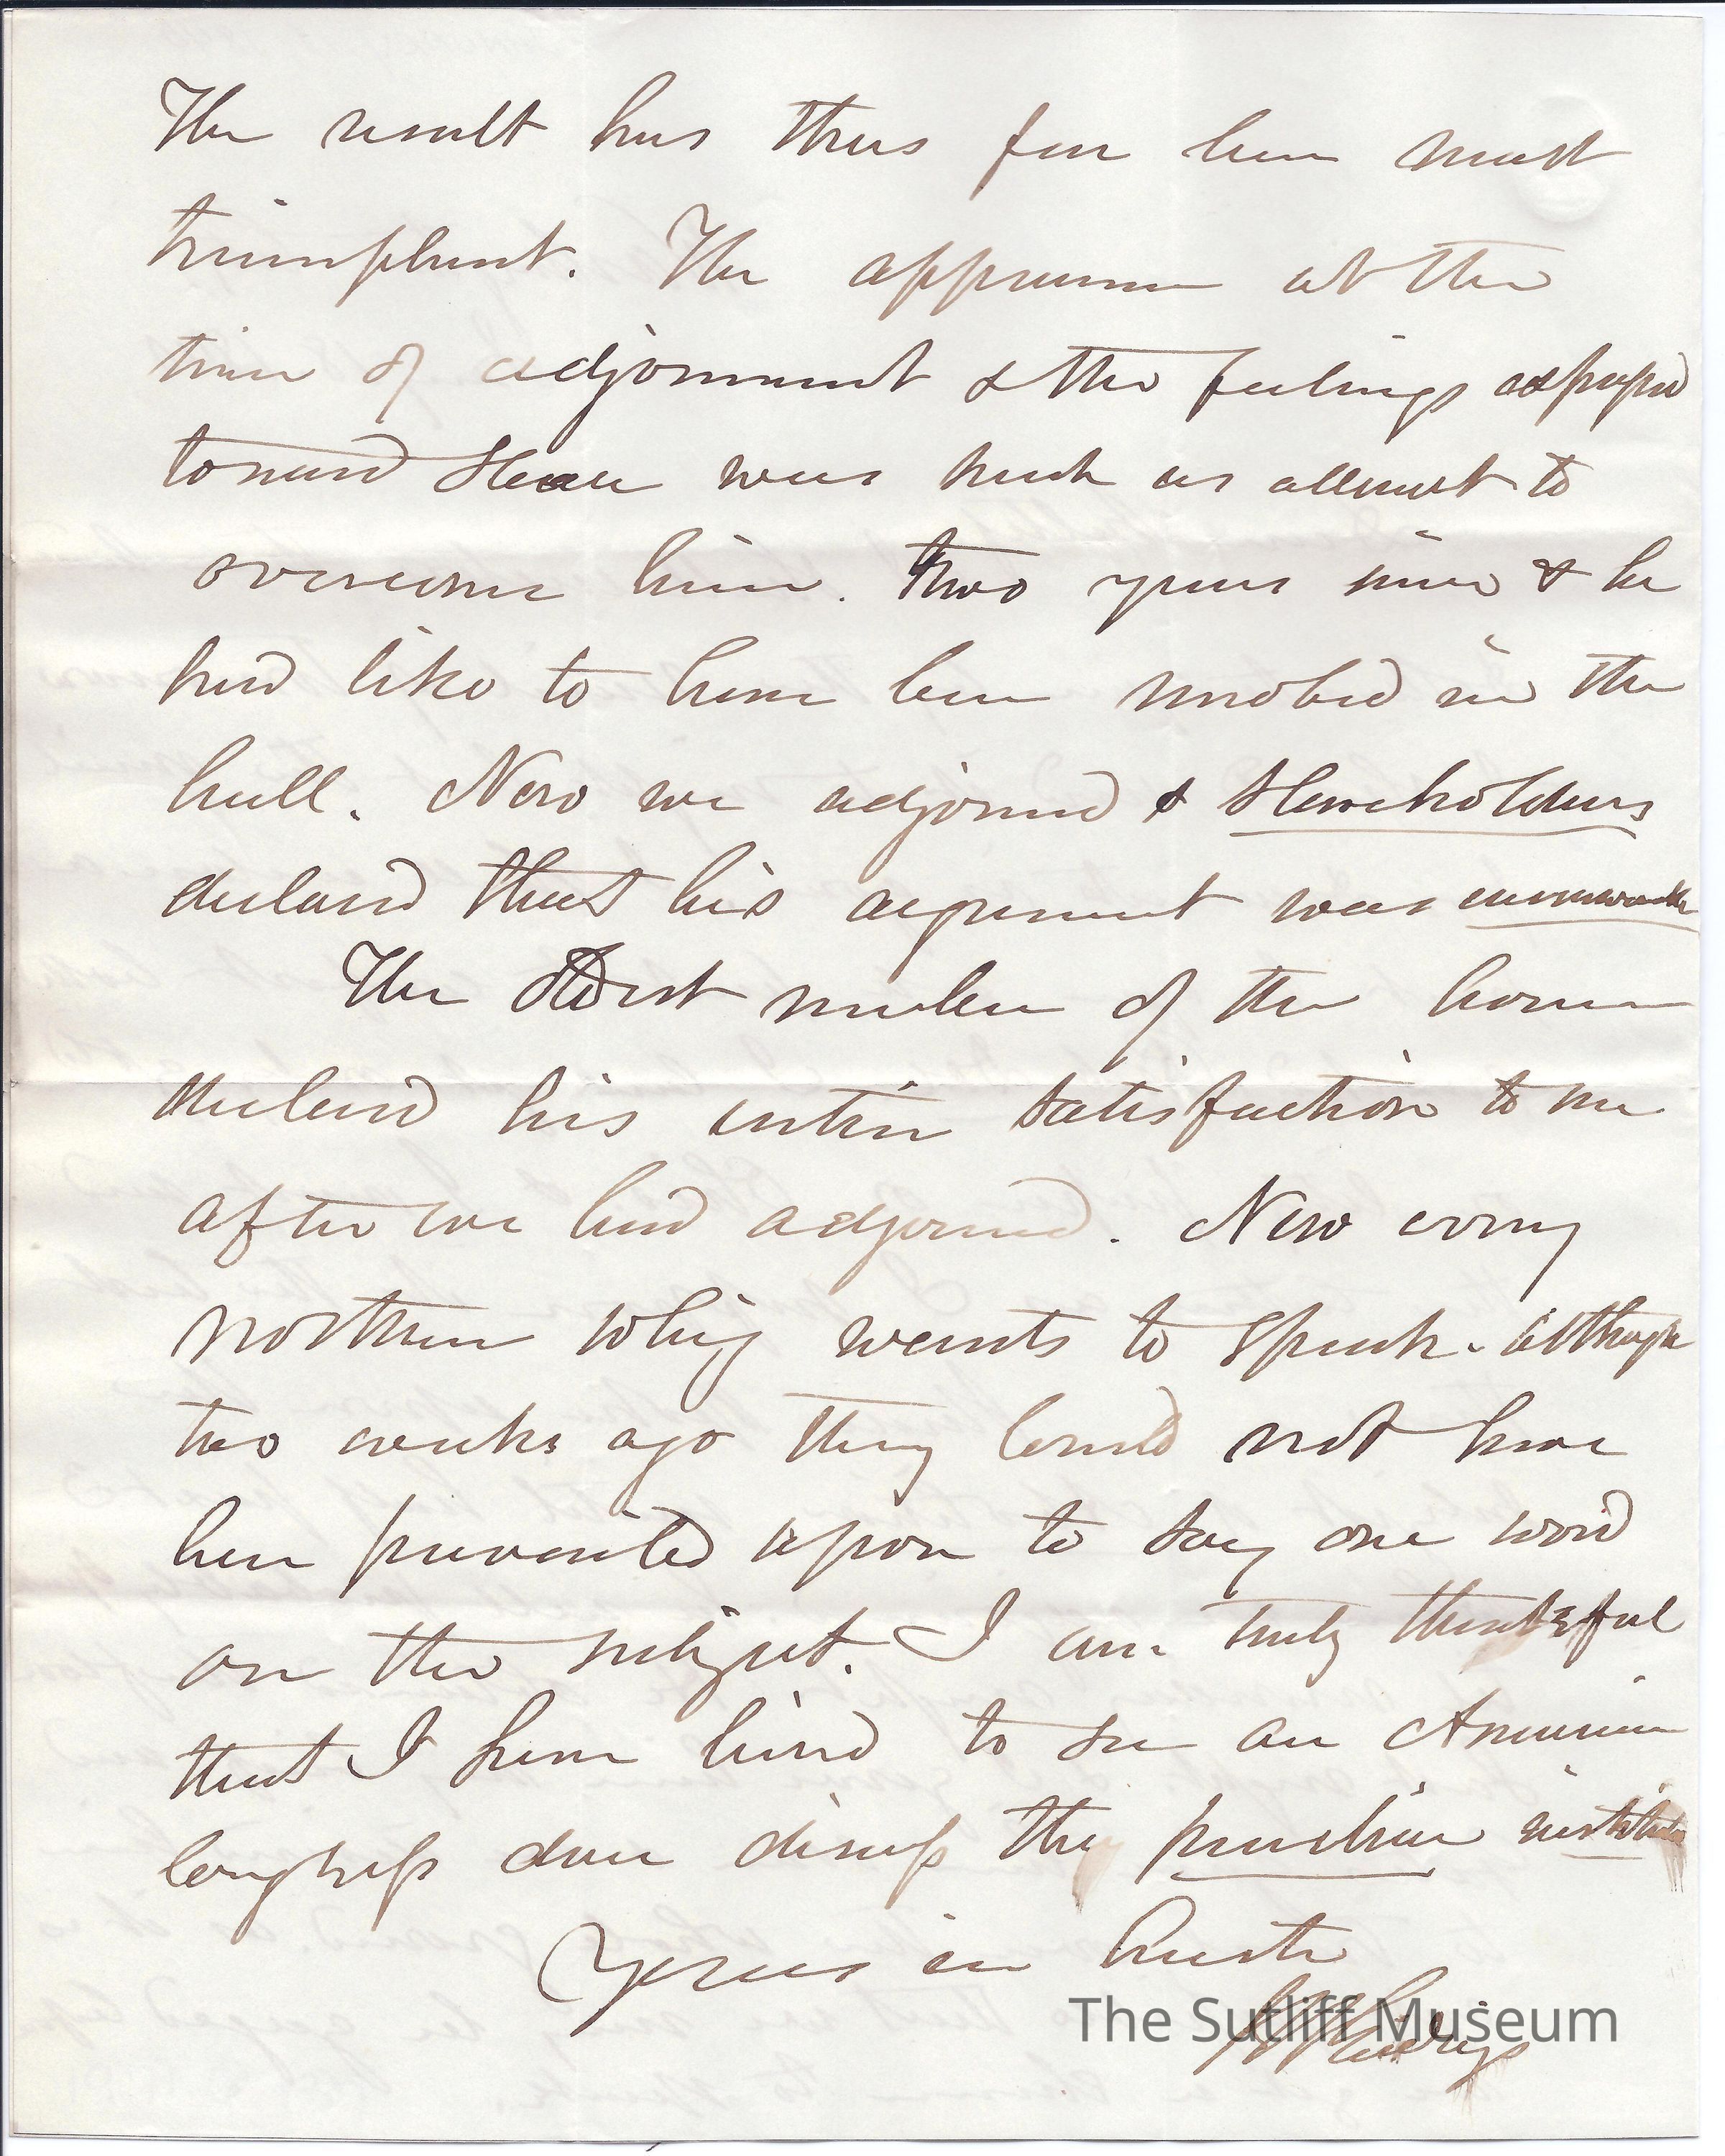 The result has thus far been most
triumphant. The appearance at the
time of adjornment & the feelings expressed
toward Slade was such as allmost to
overcome him. Two years since & he
had like to have been mobed in the
hall. Now we adjorned & Slaveholders
declared that his argument was
The oldest member of the house
declared his entire satisfaction to me
after we had adjorned. Now every
northern whig wants to speak. although
two weeks ago they could not have
been prevailed upon to say one word
on the subject. I am truly thankful
that I have lived to see an American
Congress dare discuss the peculiar institution
Yours in haste
J R Giddings
The Sutliff Museum